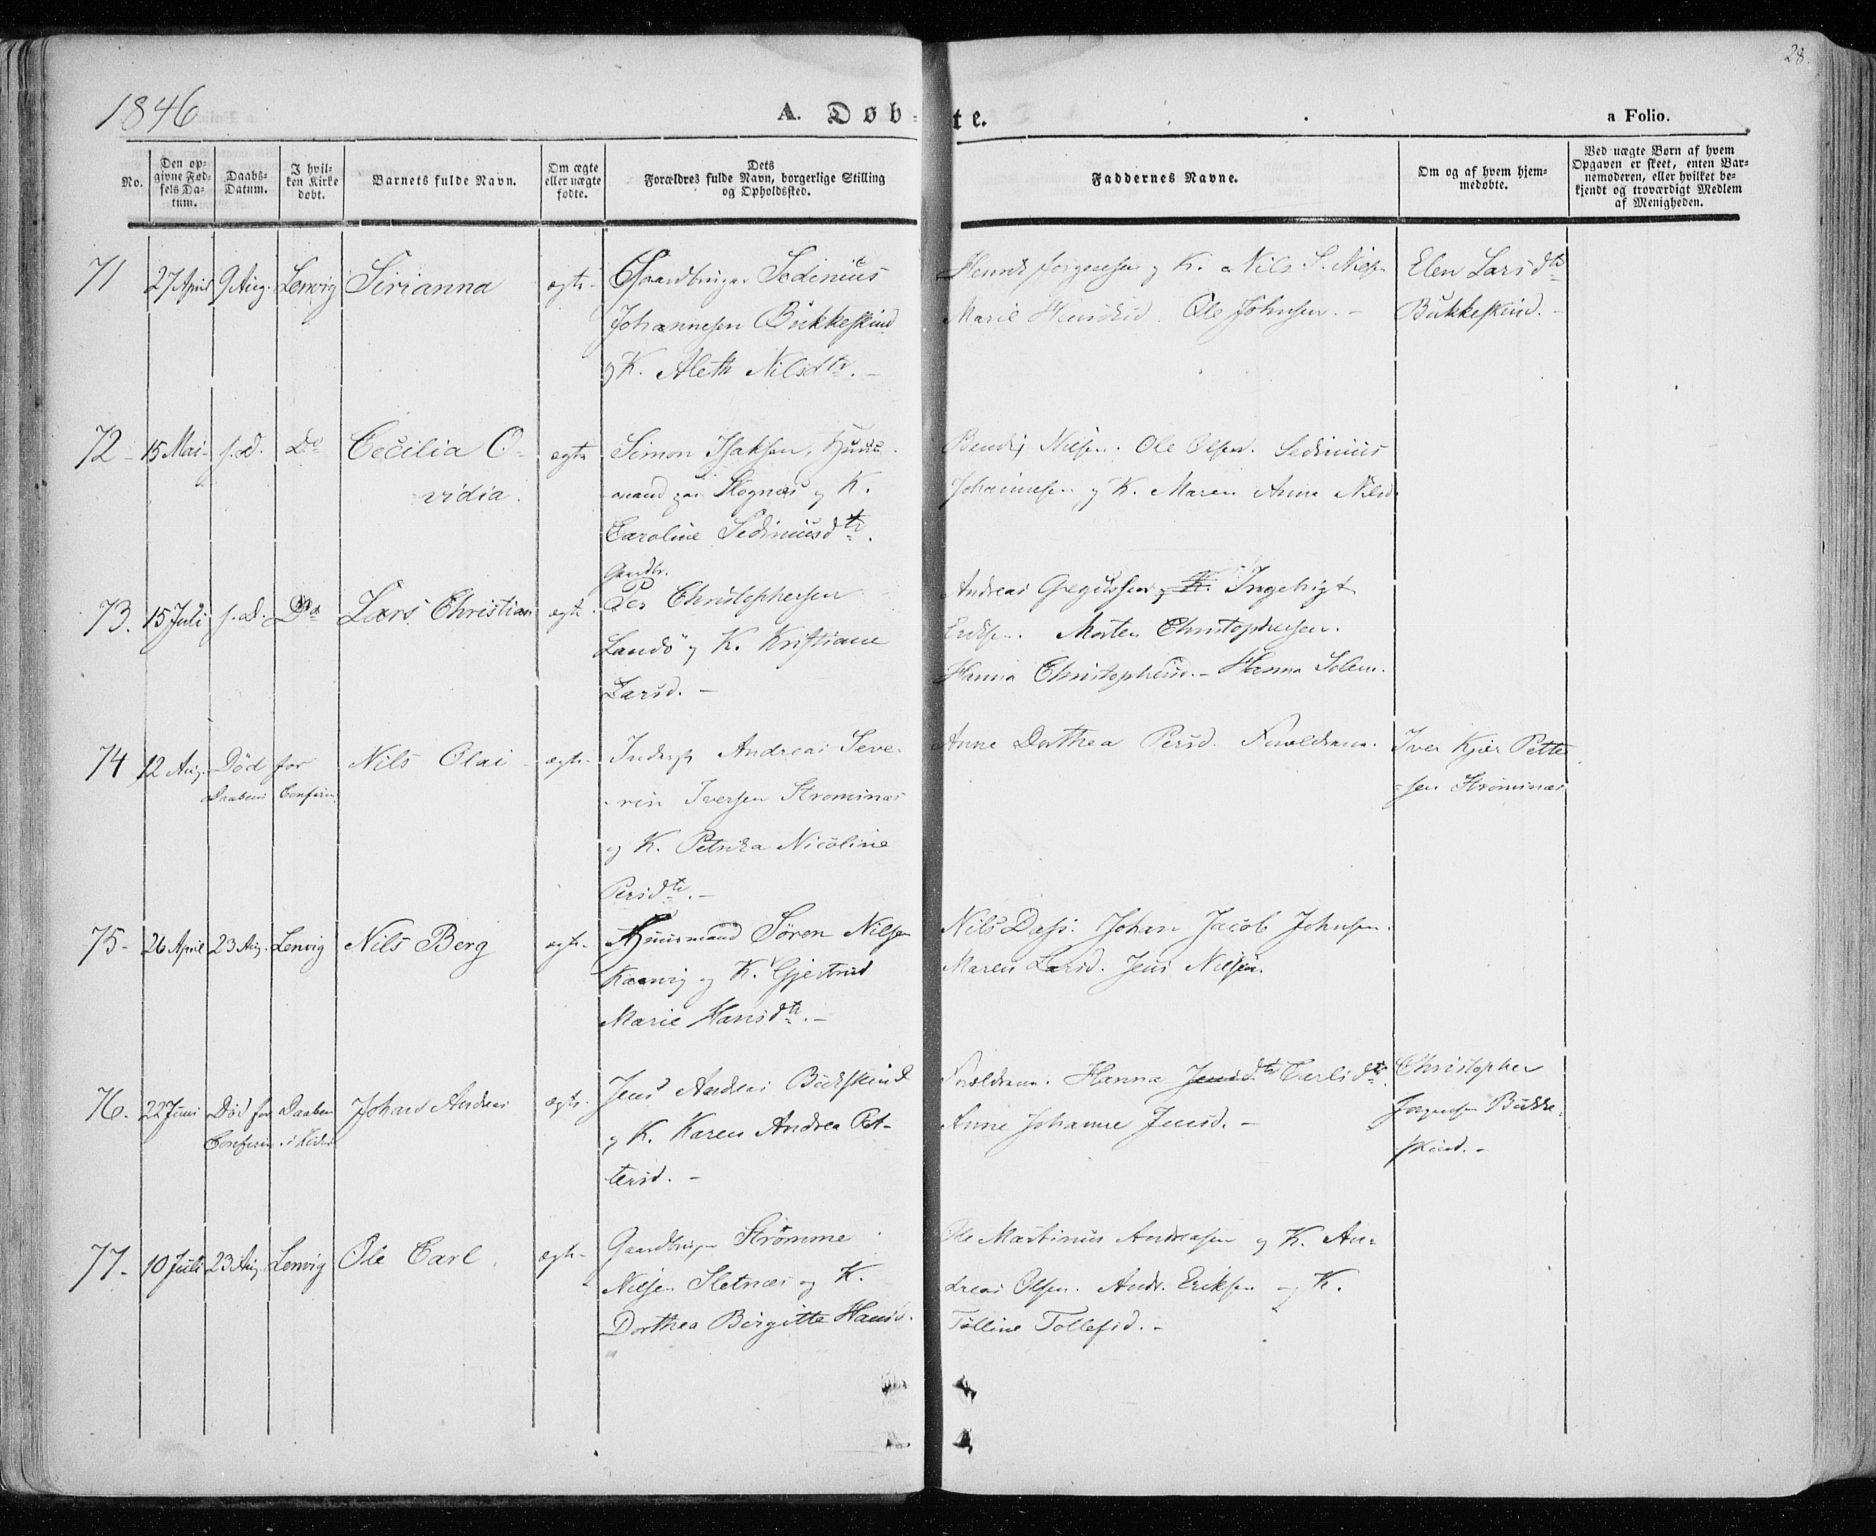 28.
1846
A. Døb-te.
a Folio.
No.
Den opgivne Fødsels Datum.
Daabs-Datum.
I hvilken Kirke døbt.
Barnets fulde Navn.
Om ægte eller uægte fødte.
Dets Forældres fulde Navn, borgerlige Stilling og Opholdssted.
Faddernes Navne.
Om og af hvem hjemmedøbte.
Ved uægte Børn af hvem Opgaven er skeet, enten Barnemoderen, eller hvilket bekjendt og troværdigt Medlem af Menigheden.
71 27 April 9 Aug. Lenvig Sirianna ægte Gaardbruger Sedinius
Johannesen Bukkeskind
og K. Aleth Nilsdtr. -
Henrik Jørgensen og K. Nils S. Niels
Marie Henriksd. Ole Johnsen. -
Elen Larsdtr
Bukkeskind. -
72 - 15 Mai - s. D. Do Cecilia O-
vidia.
ægte Simon Isaksen, Huus-
mand paa Skognæs og K.
Caroline Sediniusdtr.
Nielsen. Ole Olsen. Sedinius
Johannesen og K. Maren Anna Nilsd.
73. 15 Juli s. D. Do Lars Christian ægte Gaardbr.
Per Christophersen
Landö og K. Kristiane
Larsd. -
Andreas Gregussen og K. Ingebrigt
Eriksen. Morten Christophersen.
Hanna Christophersd. - Hanna
74 12 Aug. Død for
Daaben Confirm.
Nils Olai - ægte - Andreas Seve-
rin Iversen Strømnæs
og K. Petrika Nicoline
Persdtr. -
Anne Dorthea Persd. Forældrene.
Iver Kjær Pette
sen Strømnæs
75 - 26 April 23 Aug. Lenvig Nils Berg ægte - Huusmand Sören Nilsen
Kaarvig og K. Gjertrud
Marie Hansdtr. -
Nils Dass. Johan Jacob Johnsen.
Maren Larsd. Jens Nilsen.
76 - 22 Juni Død for Daaben
Confirm. i Kirken
Johan Andreas ægte - Jens Andreas Buckskind
og K. Karen Andrea Pet-
tersd. -
Forældrene. Hanna Jensdtr Carlsdtr.
Anne Johanne Jensd. -
Christopher
Jørgensen Bukke-
skind. -
77 - 10 Juli 23 Aug. Lenvig Ole Carl. ægte - Gaardbruger Strømme
Nilsen Sletnæs og K.
Dorthea Birgitte Hansd.
Ole Martinus Andreasen og K. An-
dreas Olsen. Andr. Eriksen og K.
Tolline Tollefsd. -